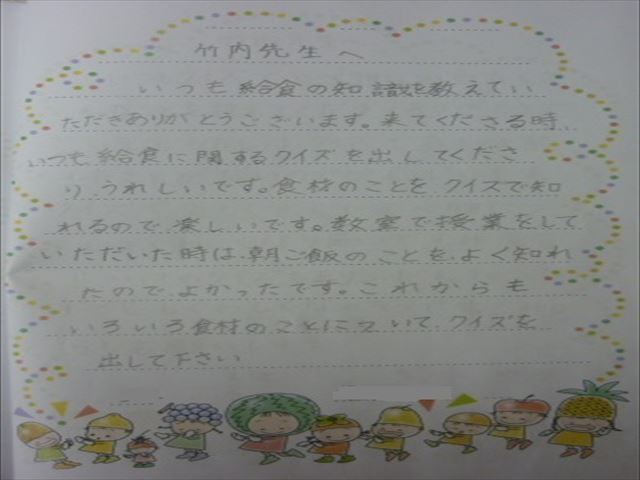 竹内先生へ
いつも給食の知識を教えてい
ただきありがとうございます。来てくださる時、
いつも給食に関するクイズを出してくださ
りうれしいです。食材のことをクイズで知
れるので楽しいです。教室で授業をして
いただいた時は朝ご飯のことをよく知れ
たのでよかったです。これからも
いろいろ食材のことについてクイズを
出して下さい